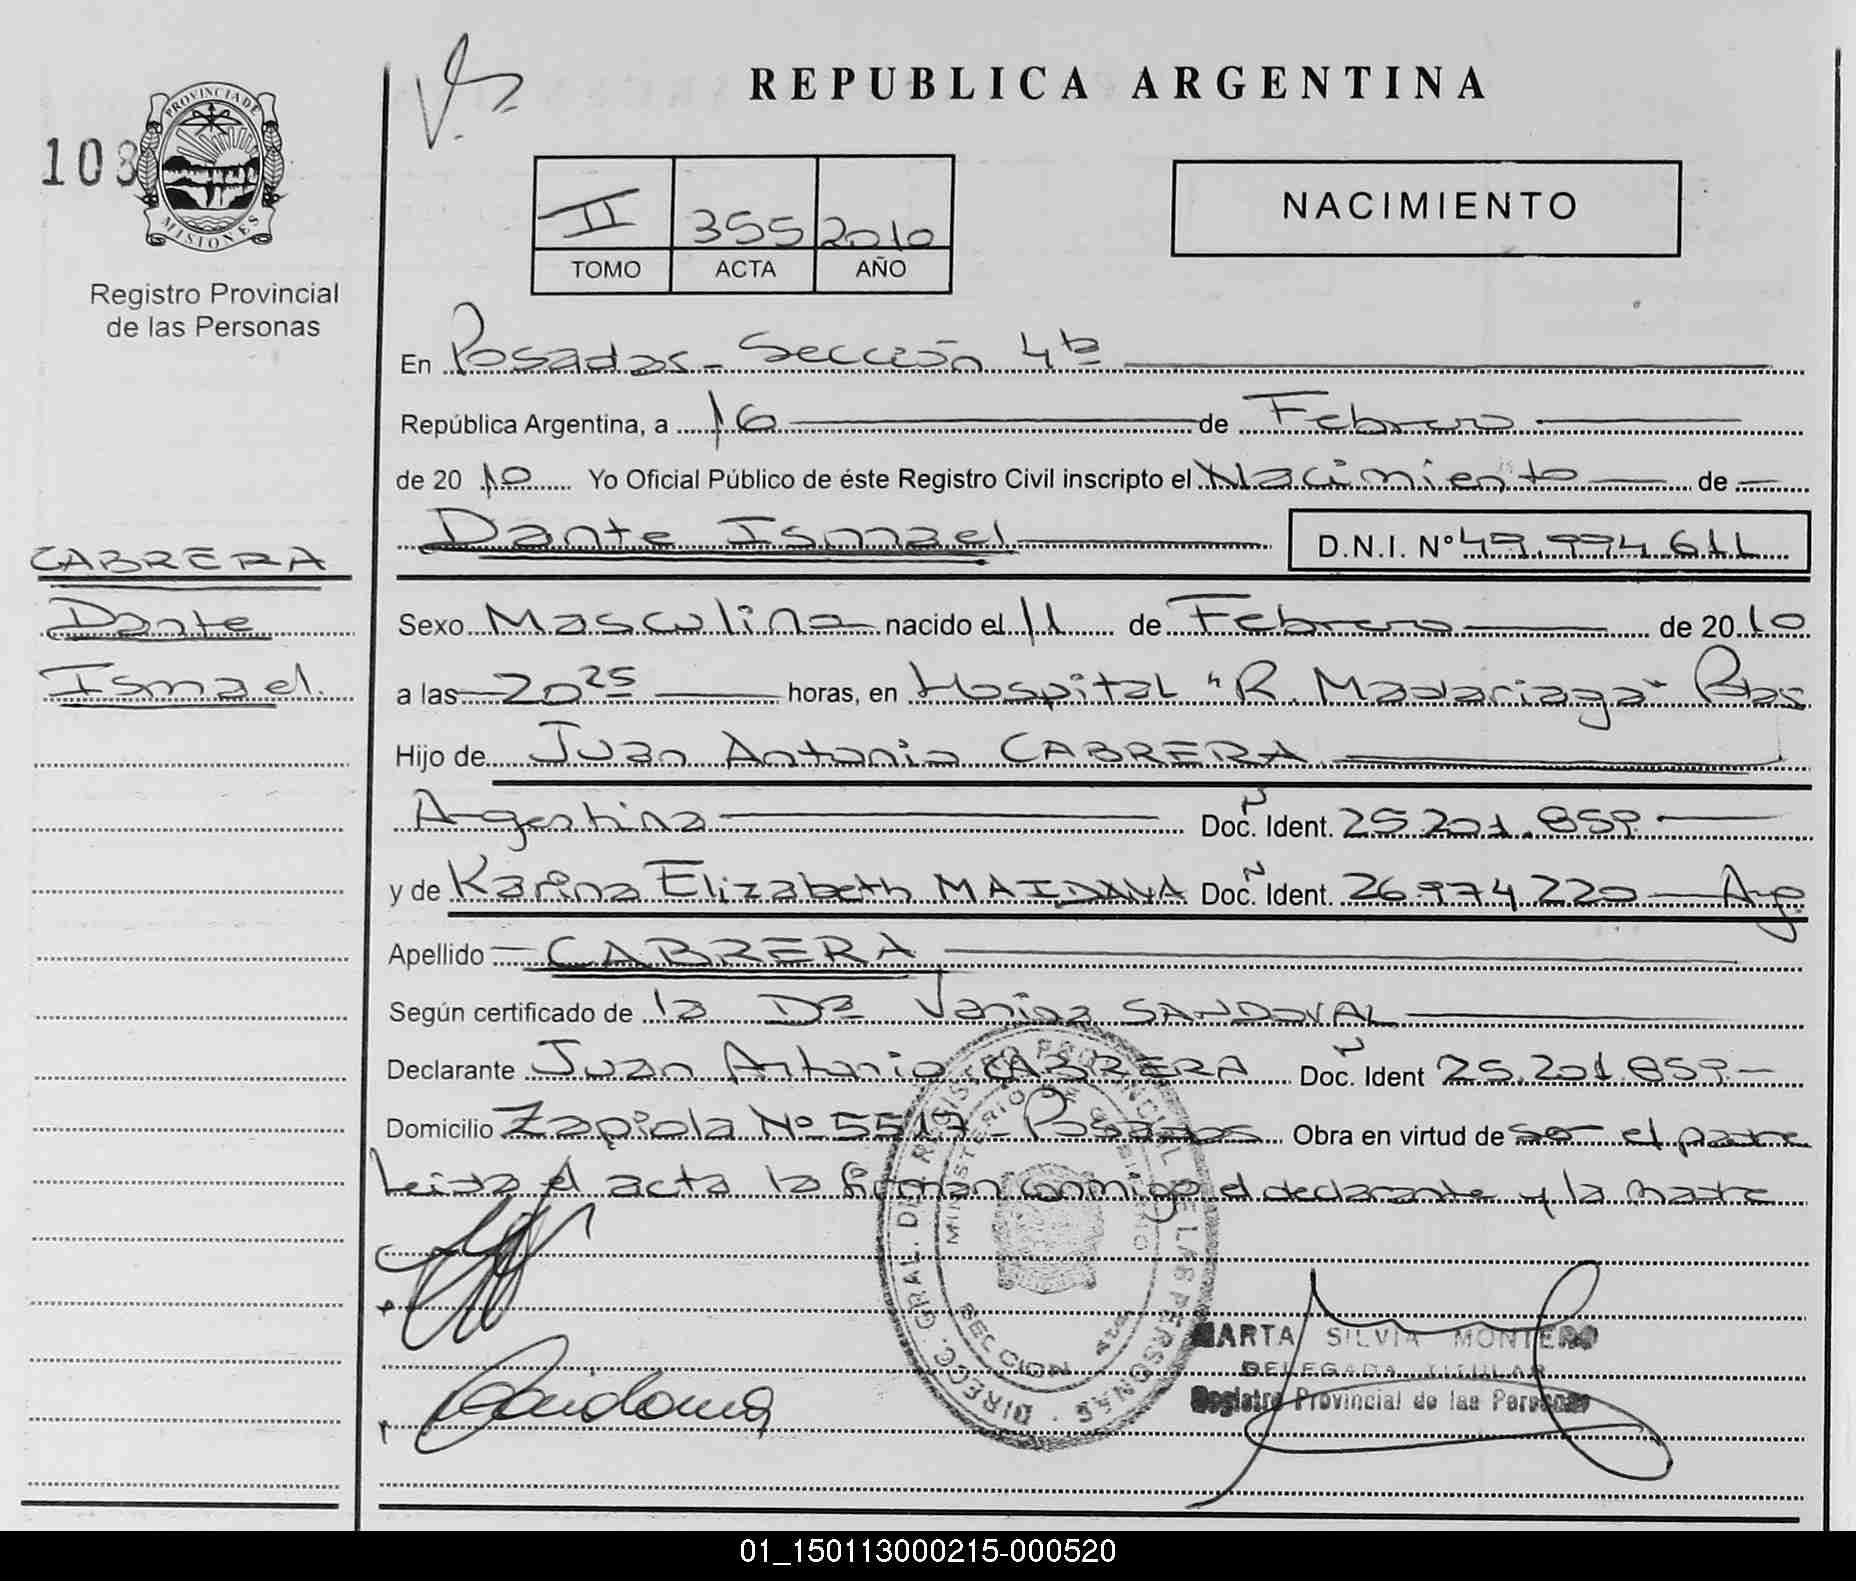 REPUBLICA ARGENTINA
108
PROVINCIA DE MISIONES
Registro Provincial
de las Personas
II 355 2010
TOMO ACTA AÑO
NACIMIENTO
En Posadas - Sección 4ta
República Argentina, a 16 de Febrero
de 2010 Yo Oficial Público de éste Registro Civil inscripto el Nacimiento de
Dante Ismael D.N.I. Nº 49.994.611
CABRERA
Dante
Ismael.
Sexo Masculino nacido el 11 de Febrero de 2010
a las 20 25 horas, en Hospital "R. Madariaga" Pdas
Hijo de Juan Antonio CABRERA
Argentina Doc. Ident. 25.201.859.-
y de Karina Elizabeth MAIDANA Doc. Ident. 26.974.220 - Arg.
Apellido CABRERA
Según certificado de la Dra SANDOVAL
Declarante Juan Antonio CABRERA Doc. Ident 25.201.859.-
Domicilio Zapiola Nº 5517 - Posadas Obra en virtud de ser el padre
Leida el acta la firman conmigo el declarante y la madre
DIREC. GRAL. DE REGISTRO PROVINCIAL DE LAS PERSONAS
MINISTERIO DE GOBIERNO
SECCION 4ta
Maidana
MARTA SILVIA MONTERO
DELEGADA TITULAR
Registro Provincial de las Personas
01_150113000215-000520